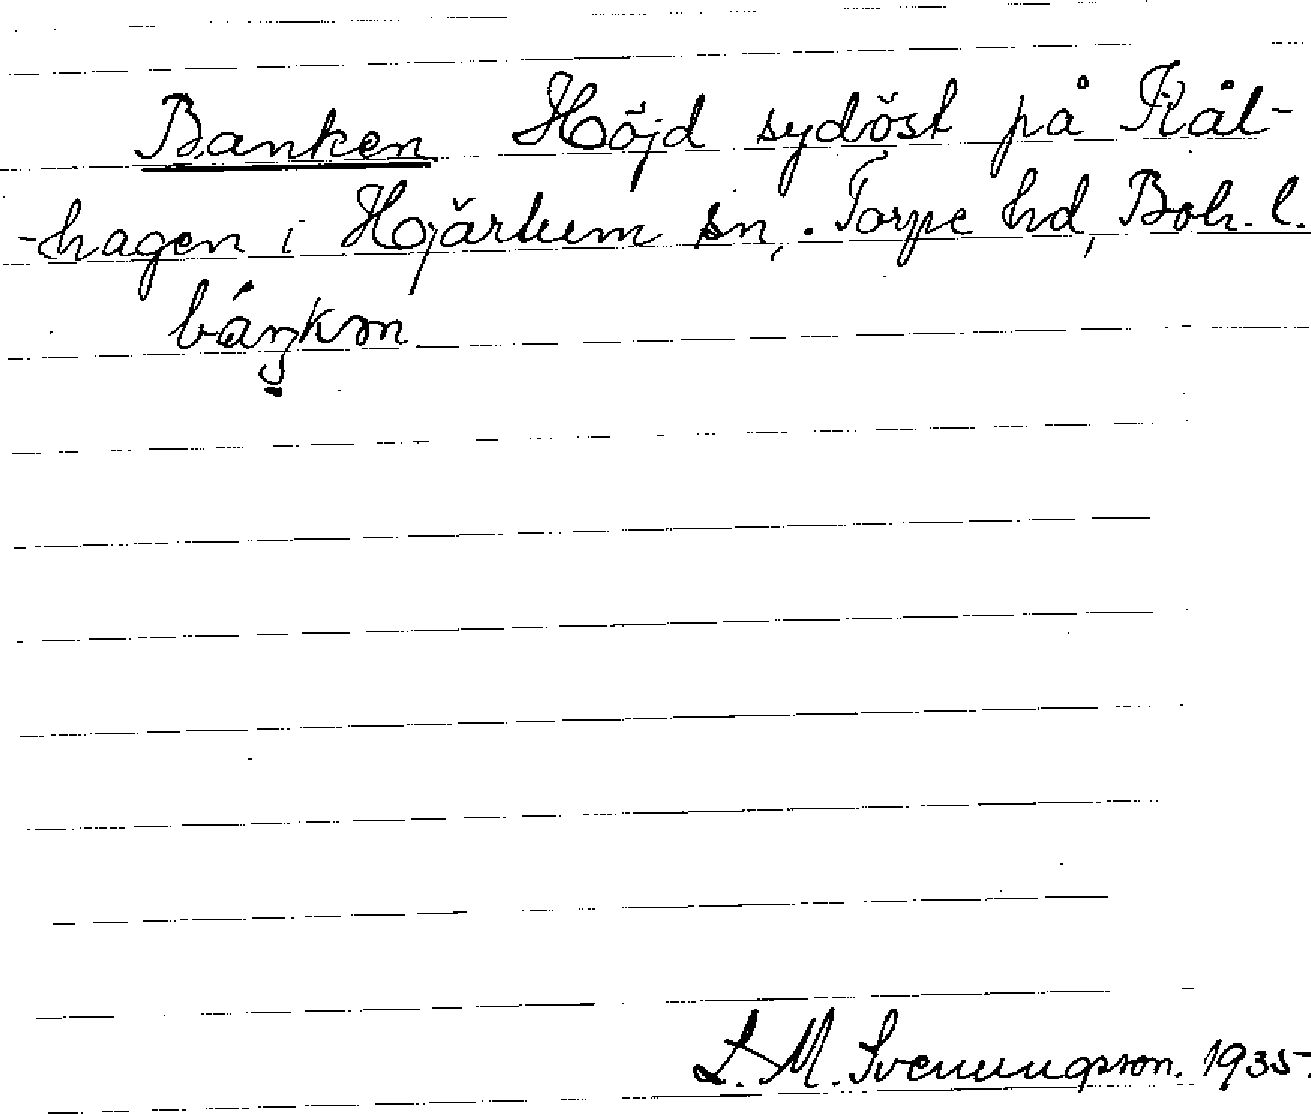 Banken Höjd sydöst på Kål-
-hagen i Hjärtum sn, . Torpe hd, Boh. l.
báŋkɷn
L. M. Svenungsson. 1935.